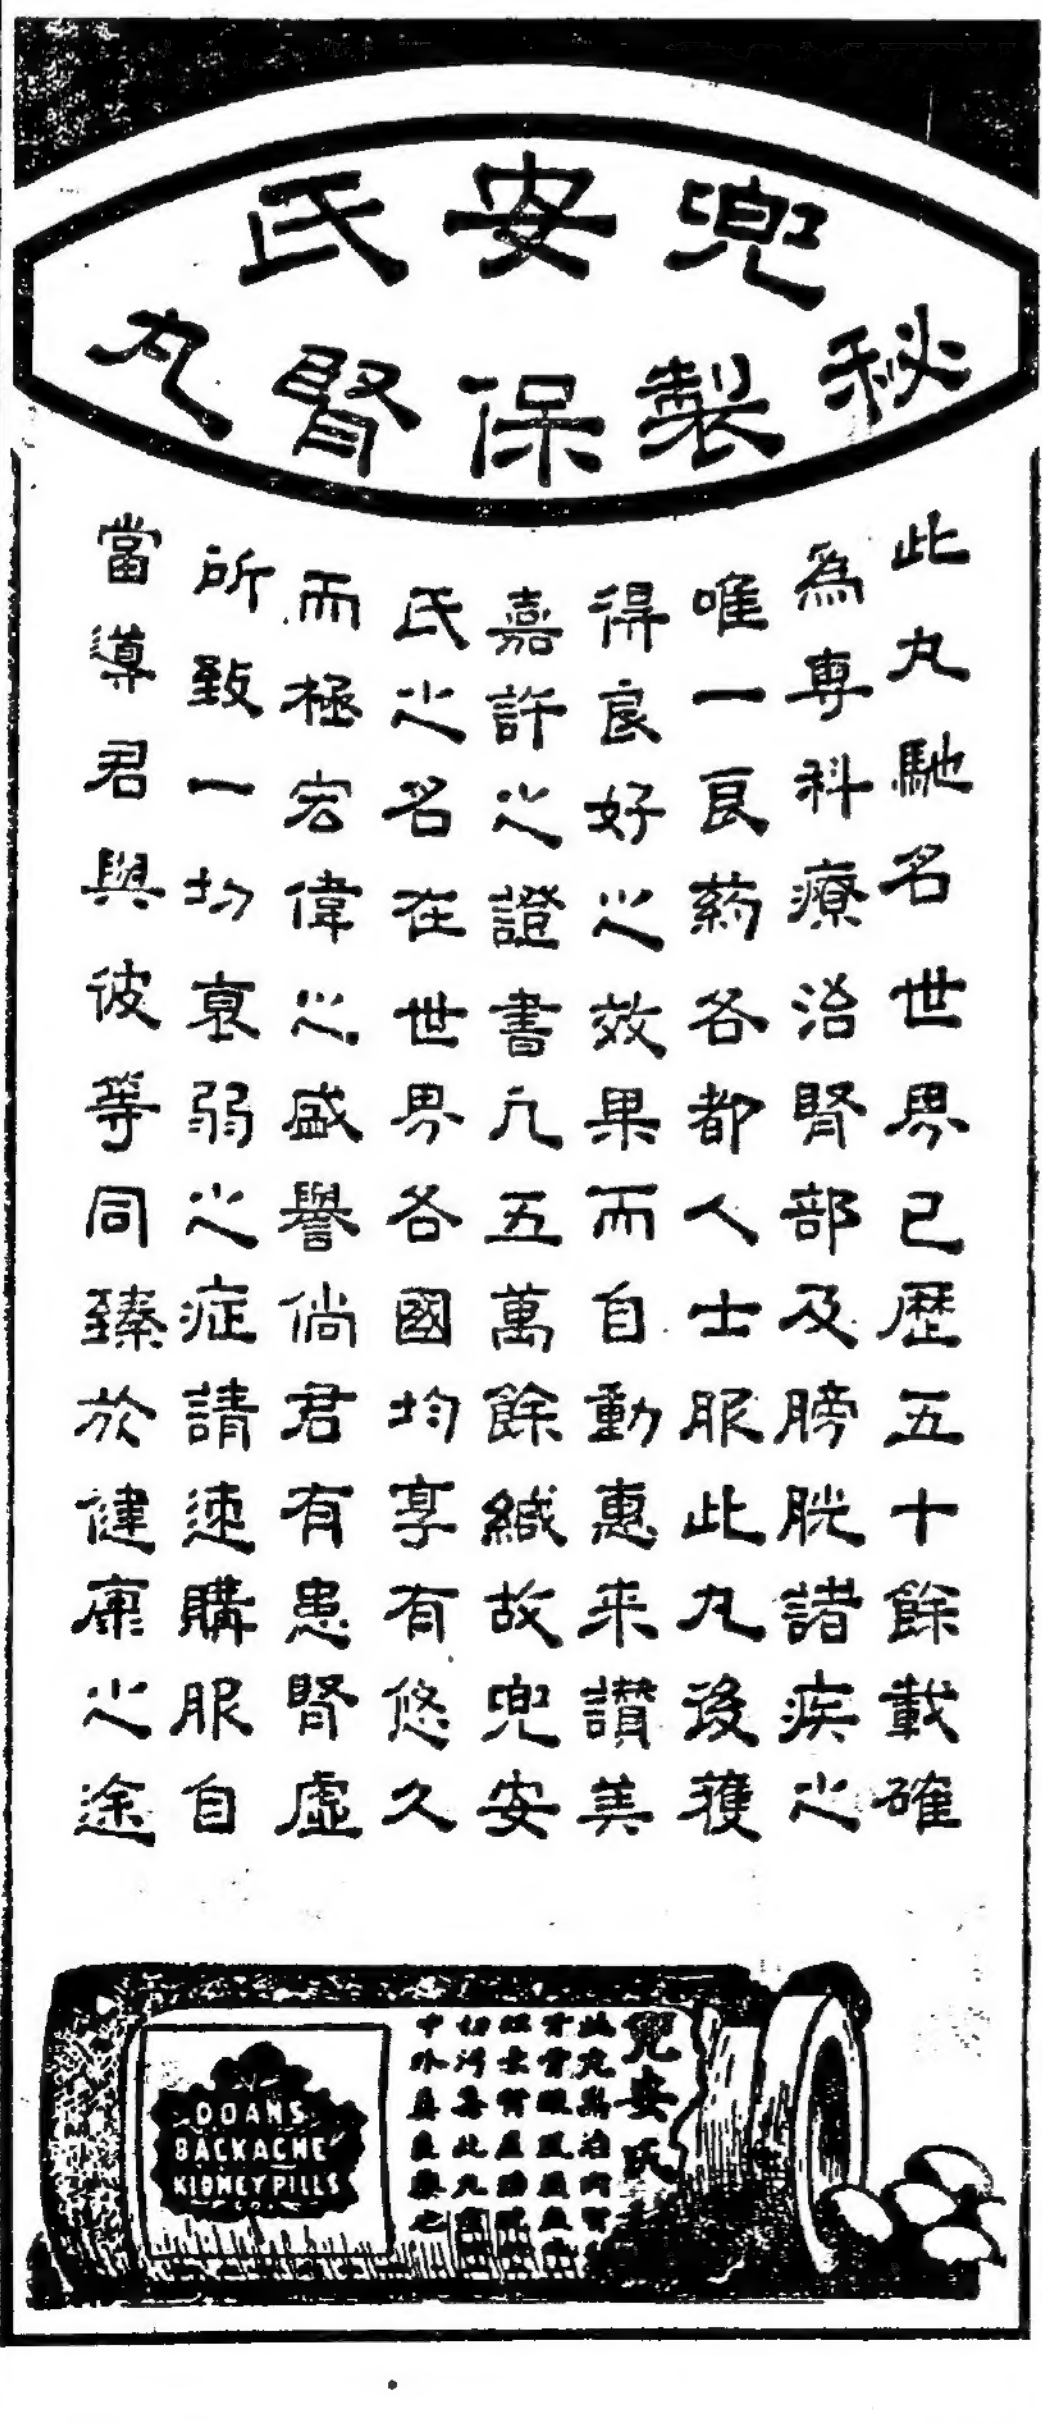 兜安氏
秘製保腎丸
此丸馳名世界已歷五十餘載確
為專科療治腎部及膀胱諸疾之
唯一良药各都人士服此丸後獲
得良好之效果而自動惠来讃美
嘉許之證書凢五萬餘緘故兜安
氏之名在世界各國均享有悠久
而極宏偉之盛譽倘君有患腎虛
所致一切衰弱之症請速購服自
當導君與彼等同臻於健康之途
兜安氏
DOANS
BACKACHE
KIDNEY PILLS